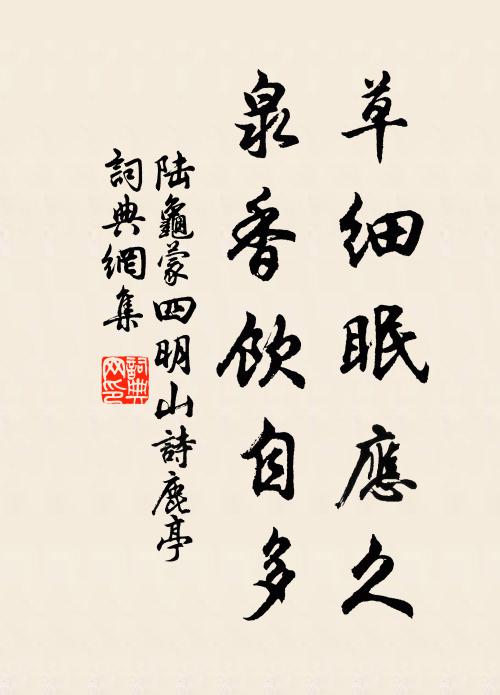 草細眠應久
泉香飲自多
陸龜蒙四明山詩鹿亭
詞典網集
詞典网印